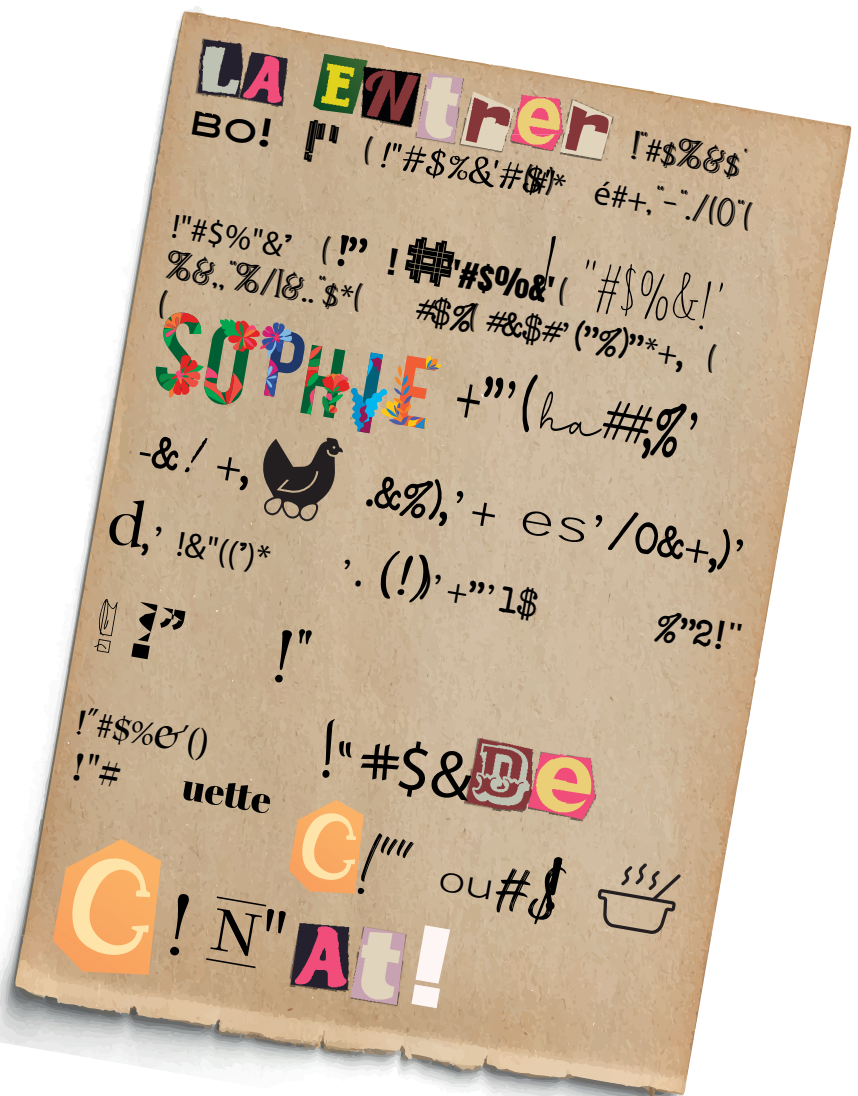 LA ENtrer
BO! !" ( !"#$%&'#$#!)* !"#$%&$'
é#+,¨–¨./(0¨(
!"#$%"&' (!"' !#'#$%&'( "#$%&!'
%&,,¨%/l&..¨$*( #$%( #&$#'("%)"*+, (
(
SOPHIE +"''(ha##,%'
-&! +, .&%),'+ es'/0&+,)'
d,' !&"((')* '. (!)'+"''1$
%"2!"
!" !"
!"#$%&'() !"#$&De
!"# uette
C!"" ou#$
C!N"At!